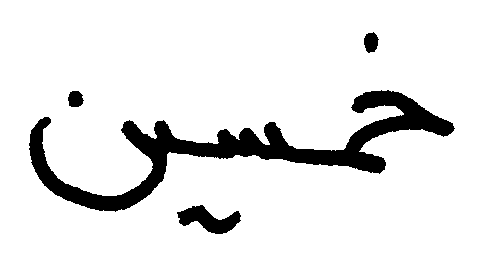 خمسين